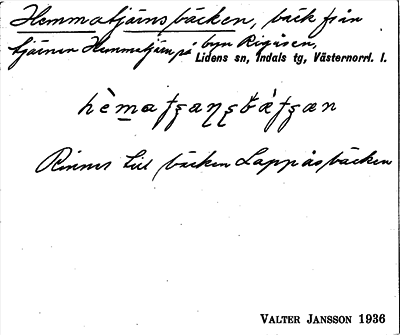 Hemmatjärnsbäcken, bäck från
tjärnen Hemmatjärn, på byn Rigåsen,
Lidens sn, Indals tg, Västernorrl. l.
Rinner till bäcken Lappåsbäcken
VALTER JANSSON 1936